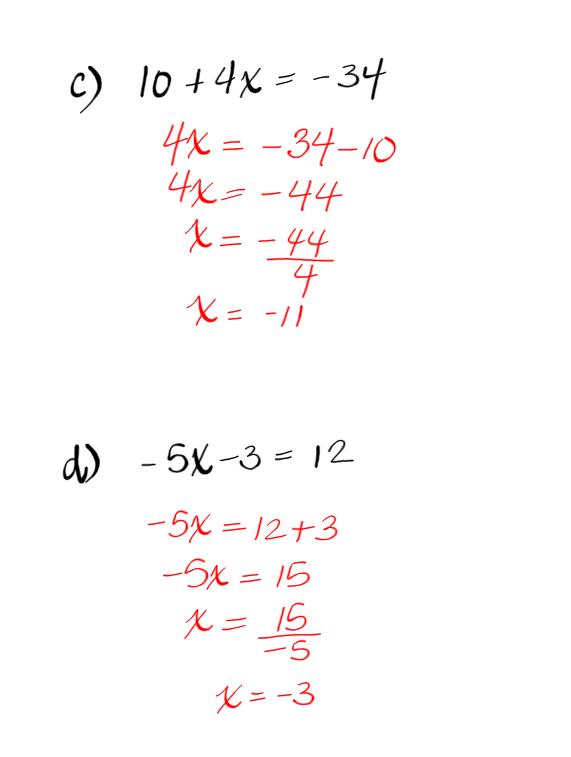 c) 10 + 4x = -34
4x = -34-10
4x = -44
x = -44/4
x = -11
d) -5x-3 = 12
-5x = 12+3
-5x = 15
x = 15/-5
x = -3